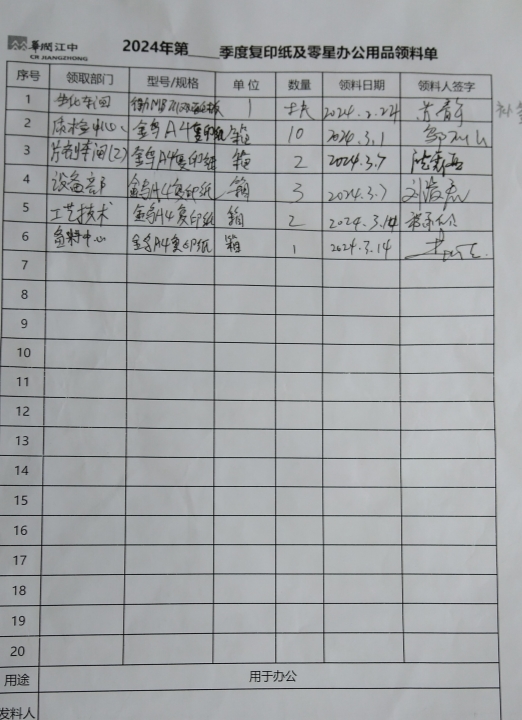 華潤江中
CR JIANGZHONG
2024年第____季度复印纸及零星办公用品领料单
序号 领取部门 型号/规格 单位 数量 领料日期 领料人签字
1 1 块 2024.2.22
2 质检中心 金号A4复印纸 箱 10 2024.3.1
3 片剂车间(2) 金号A4复印纸 箱 2 2024.3.7
4 设备部 金号A4复印纸 箱 3 2024.3.7
5 工艺技术 金号A4复印纸 箱 2 2024.3.14
6 备料中心 金号A4复印纸 箱 1 2024.3.14
7
8
9
10
11
12
13
14
15
16
17
18
19
20
用途 用于办公
发料人